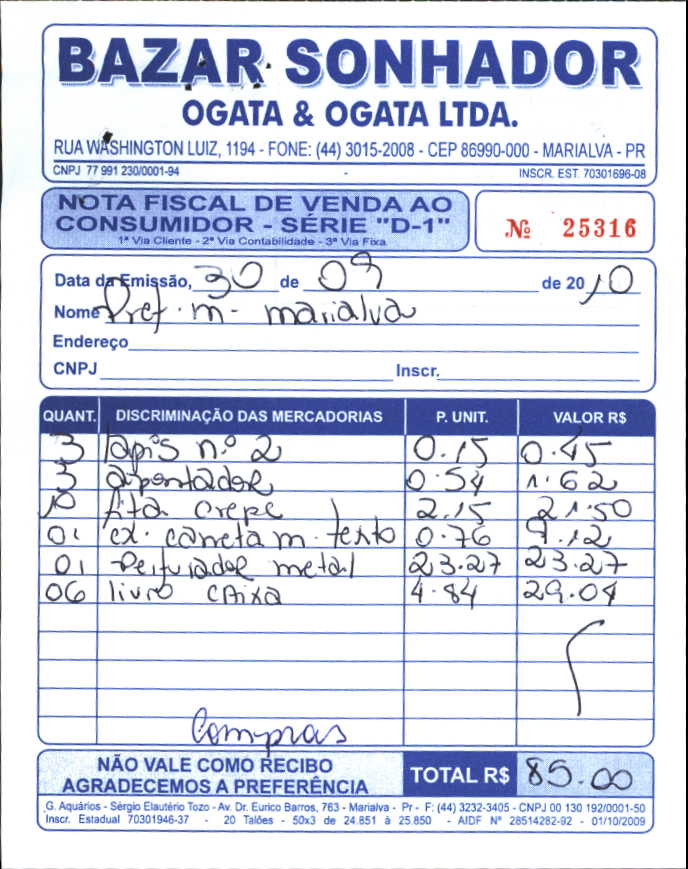 BAZAR SONHADOR
OGATA & OGATA LTDA.
RUA WASHINGTON LUIZ, 1194 - FONE: (44) 3015-2008 - CEP 86990-000 - MARIALVA - PR
CNPJ 77 991 230/0001-94 INSCR. EST. 70301696-08
NOTA FISCAL DE VENDA AO
CONSUMIDOR - SÉRIE "D-1"
1ª Via Cliente - 2ª Via Contabilidade - 3ª Via Fixa
Nº 25316
Data da Emissão, 30 de 09 de 2010
Nome Pref. m- marialva
Endereço
CNPJ Inscr.
QUANT. DISCRIMINAÇÃO DAS MERCADORIAS P. UNIT. VALOR R$
3 lapis n.º 2 0.15 0.45
3 apontador 0.54 1.62
10 fita crepe 2.15 21.50
01 cx. caneta m. texto 0.76 9.12
01 Perfurador metal 23.27 23.27
06 livro caixa 4.84 29.04
Compras
NÃO VALE COMO RECIBO
AGRADECEMOS A PREFERÊNCIA
TOTAL R$ 85.00
G. Aquários - Sérgio Elautério Tozo - Av. Dr. Eurico Barros, 763 - Marialva - Pr - F: (44) 3232-3405 - CNPJ 00 130 192/0001-50
Inscr. Estadual 70301946-37 - 20 Talões - 50x3 de 24.851 à 25.850 - AIDF Nº 28514282-92 - 01/10/2009